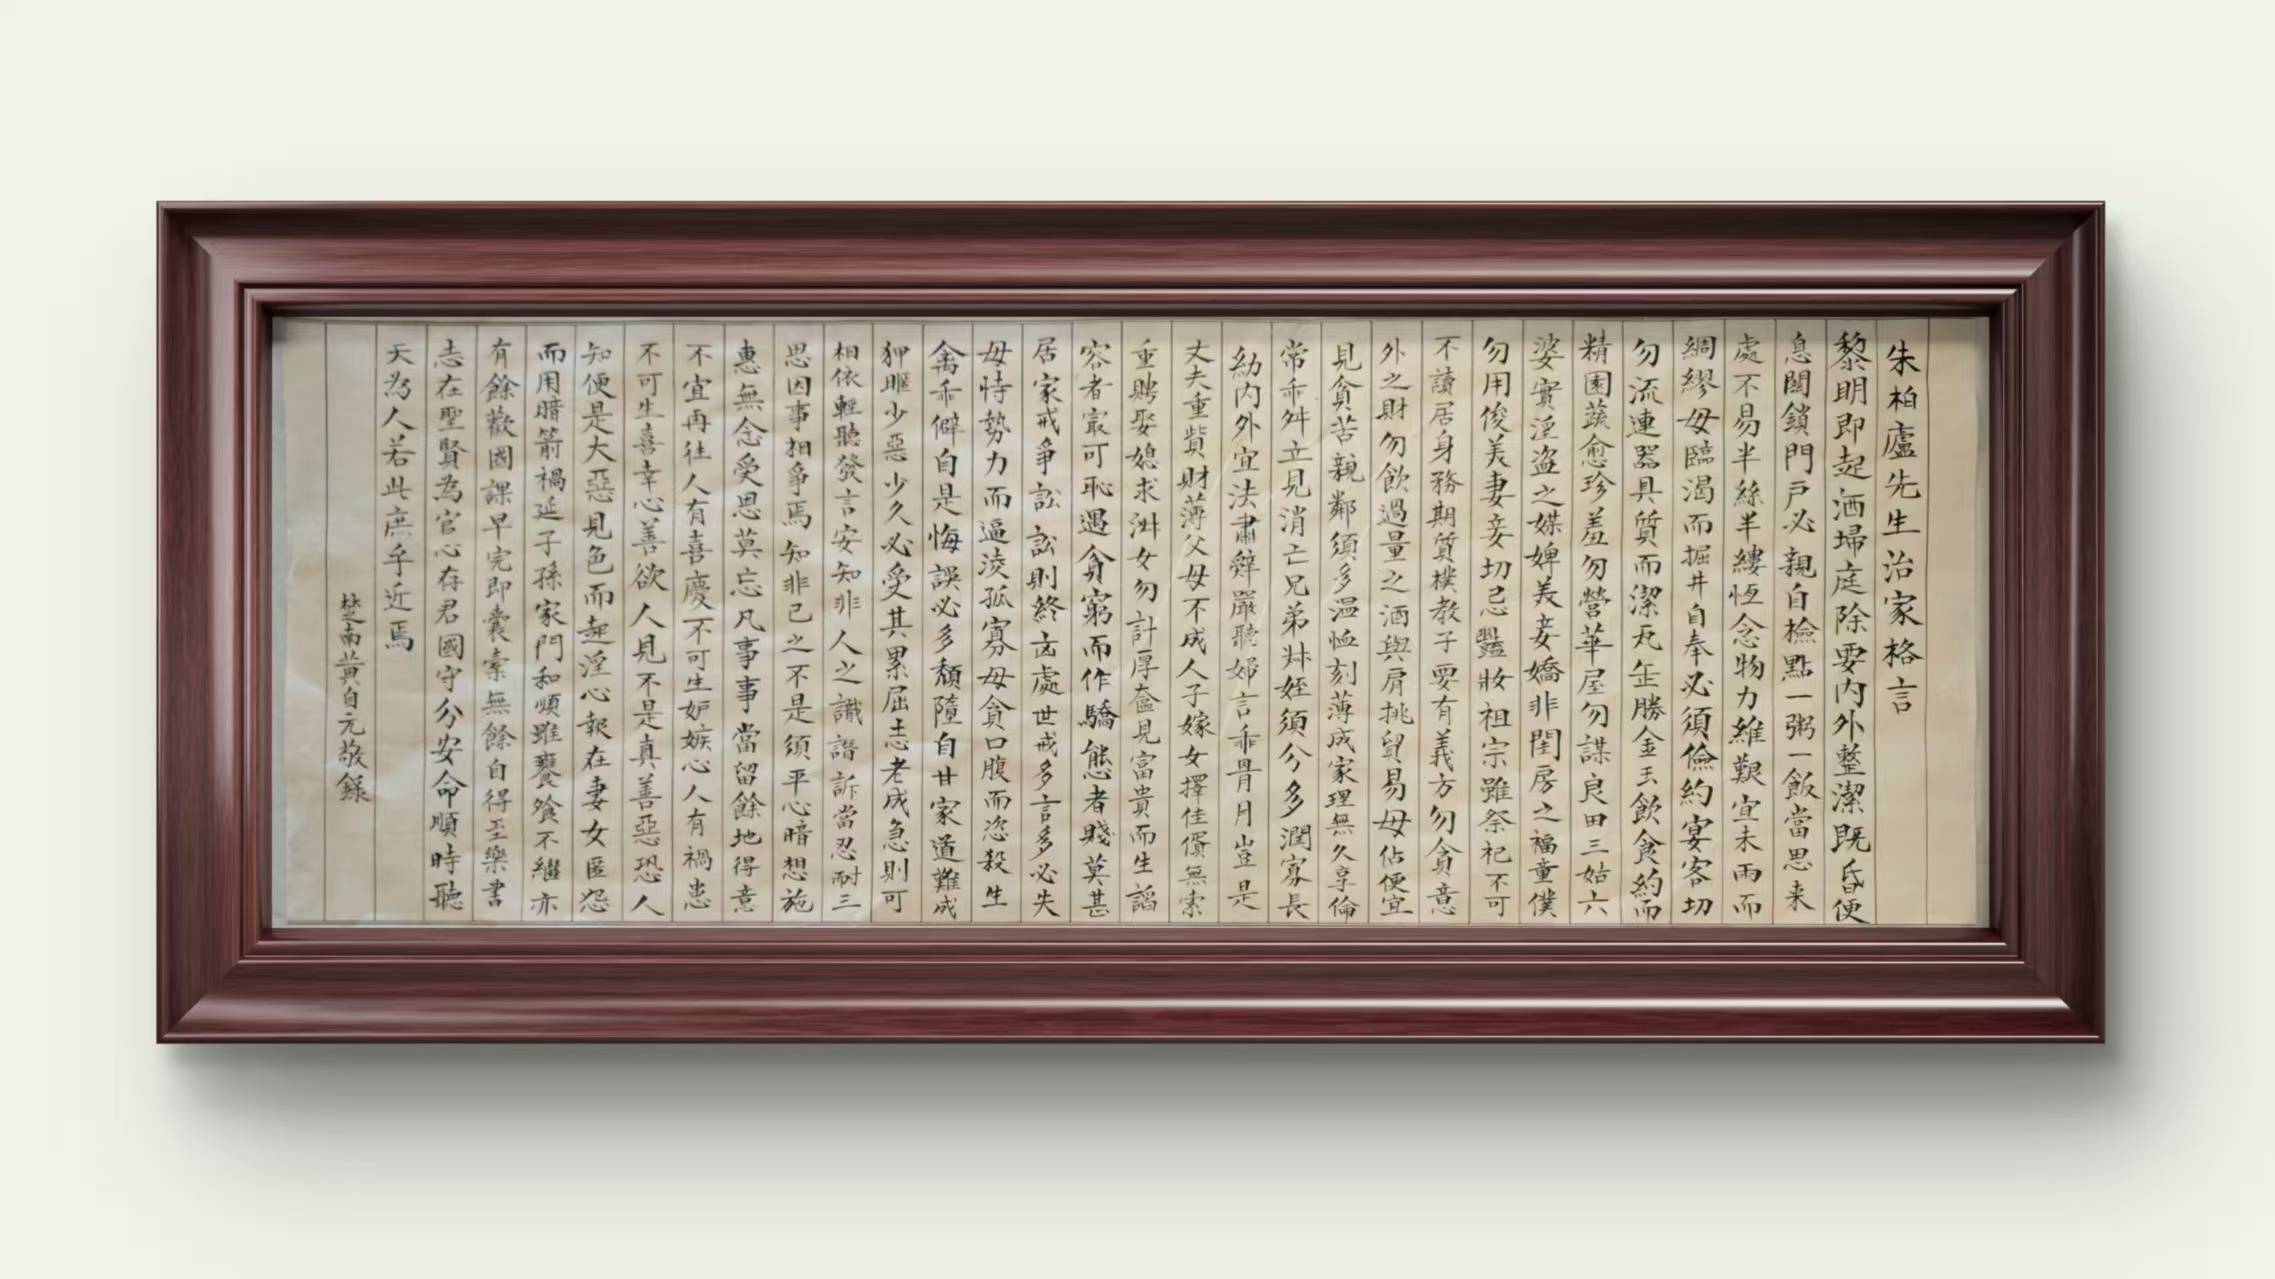 朱柏廬先生治家格言
黎明即起洒埽庭除要内外整潔既昏便
息關鎖門戸必親自檢點一粥一飯當思来
處不易半絲半縷恆念物力維艱宜未雨而
綢繆毋臨渴而掘井自奉必須儉約宴客切
勿流連器具質而潔瓦缶勝金玉飲食約而
精園蔬愈珍羞勿營華屋勿謀良田三姑六
婆實淫盗之媒婢美妾嬌非閨房之福童僕
勿用俊美妻妾切忌豔妝祖宗雖祭祀不可
不讀居身務期質樸教子要有義方勿貪意
外之財勿飲過量之酒與肩挑貿易毋佔便宜
見貪苦親鄰須多温恤刻薄成家理無久享倫
常乖舛立見消亡兄弟叔姪須分多潤寡長
幼内外宜法肅辭嚴聽婦言乖骨月豈是
丈夫重貲財薄父母不成人子嫁女擇佳壻無索
重聘娶媳求淑女勿計厚奩見富貴而生諂
容者㝡可恥遇貪窮而作驕態者賤莫甚
居家戒爭訟訟則終凶處世戒多言多必失
毋恃勢力而逼淩孤寡毋貪口腹而恣殺生
禽乖僻自是悔誤必多頽墮自甘家道難成
狎暱少惡少久必受其累屈志老成急則可
相依輕聽發言安知非人之譖譖訴當忍耐三
思因事相爭焉知非己之不是須平心暗想施
惠無念受恩莫忘凡事事當留餘地得意
不宜再往人有喜慶不可生妒嫉心人有禍患
不可生喜幸心善欲人見不是真善惡恐人
知便是大惡見色而起淫心報在妻女匿怨
而用暗箭禍延子孫家門和順雖饔飧不繼亦
有餘歡國課早完即囊橐無餘自得至樂書
志在聖賢為官心存君國守分安命順時聽
天為人若此庶乎近焉
楚南黄自元敬錄